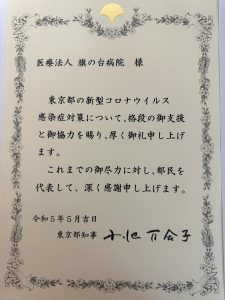 医療法人 旗の台病院 様
東京都の新型コロナウイルス
感染症対策について、格段の御支援
と御協力を賜り、厚く御礼申し上げ
ます。
これまでの御尽力に対し、都民を
代表して、深く感謝申し上げます。
令和５年５月吉日
東京都知事 小池百合子